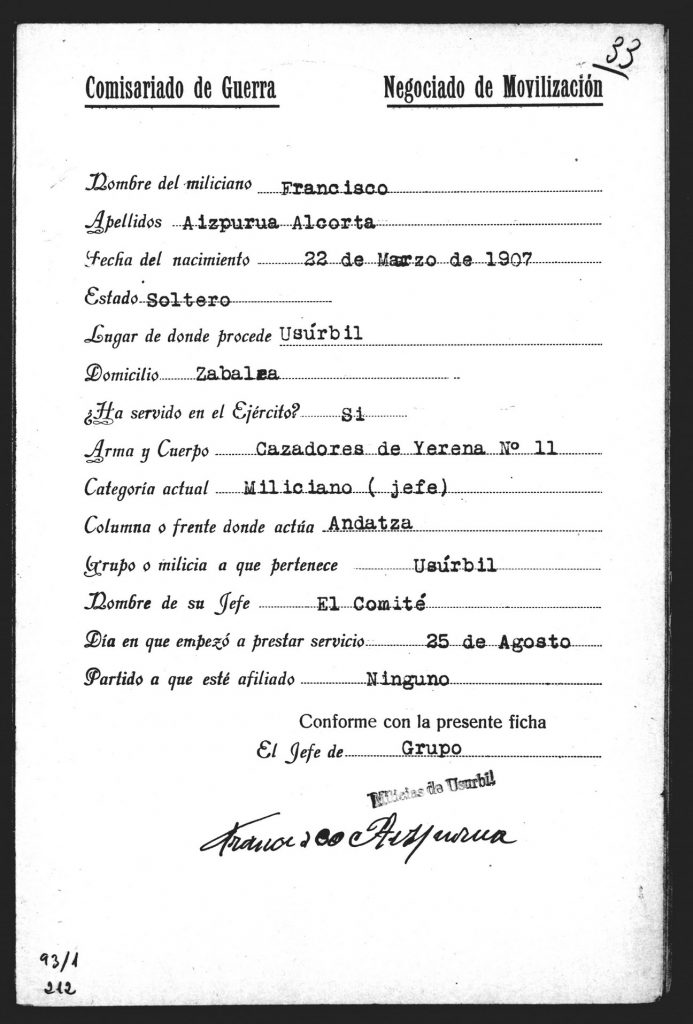 33
Comisariado de Guerra Negociado de Movilización
Nombre del miliciano Francisco
Apellidos Aizpurua Alcorta
Fecha del nacimiento 22 de Marzo de 1907
Estado Soltero
Lugar de donde procede Usúrbil
Domicilio Zabalea
¿Ha servido en el Ejército? Si
Arma y Cuerpo Cazadores de Yerena Nº 11
Categoría actual Miliciano ( jefe)
Columna o frente donde actúa Andatza
Grupo o milicia a que pertenece Usúrbil
Nombre de su Jefe El Comité
Día en que empezó a prestar servicio 25 de Agosto
Partido a que esté afiliado Ninguno
Conforme con la presente ficha
El Jefe de Grupo
Milicias de Usurbil
Francisco Aizpurua
93/1
212